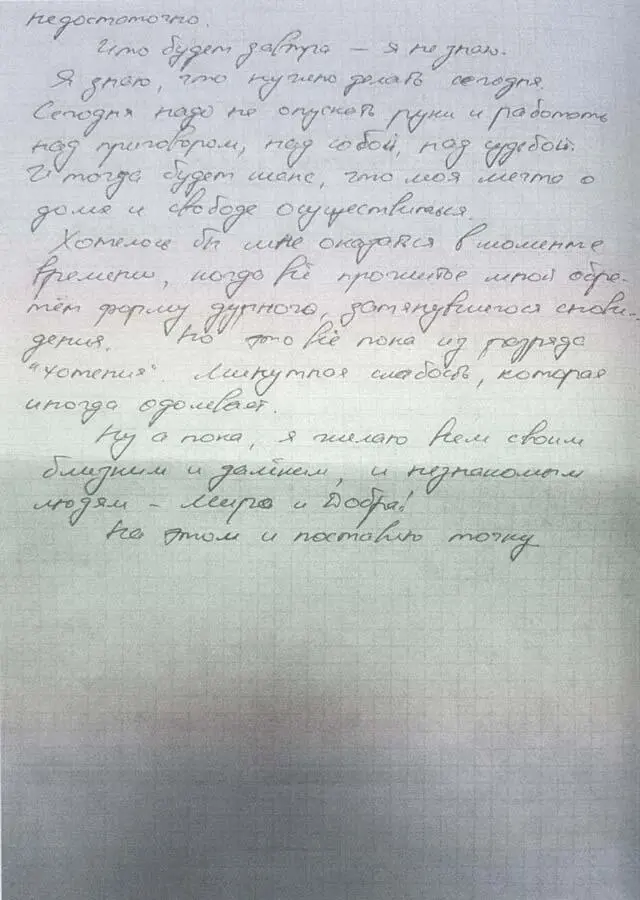 недостаточно.
Что будет завтра – я не знаю.
Я знаю, что нужно делать сегодня.
Сегодня надо не опускать руки и работать
над приговором, над собой, над судьбой.
И тогда будет шанс, что моя мечта о
доме и свободе осуществиться.
Хотелось бы мне оказаться в моменте
времени, когда всё прожитое мной обре-
тём форму дурного, затянувшегося снови-
дения. Но это всё пока из разряда
"хотения". Минутная слабость, которая
иногда одолевает.
Ну а пока, я желаю всем своим
близким и далёким, и незнакомым
людям – Мира и Добра!
На этом и поставлю точку